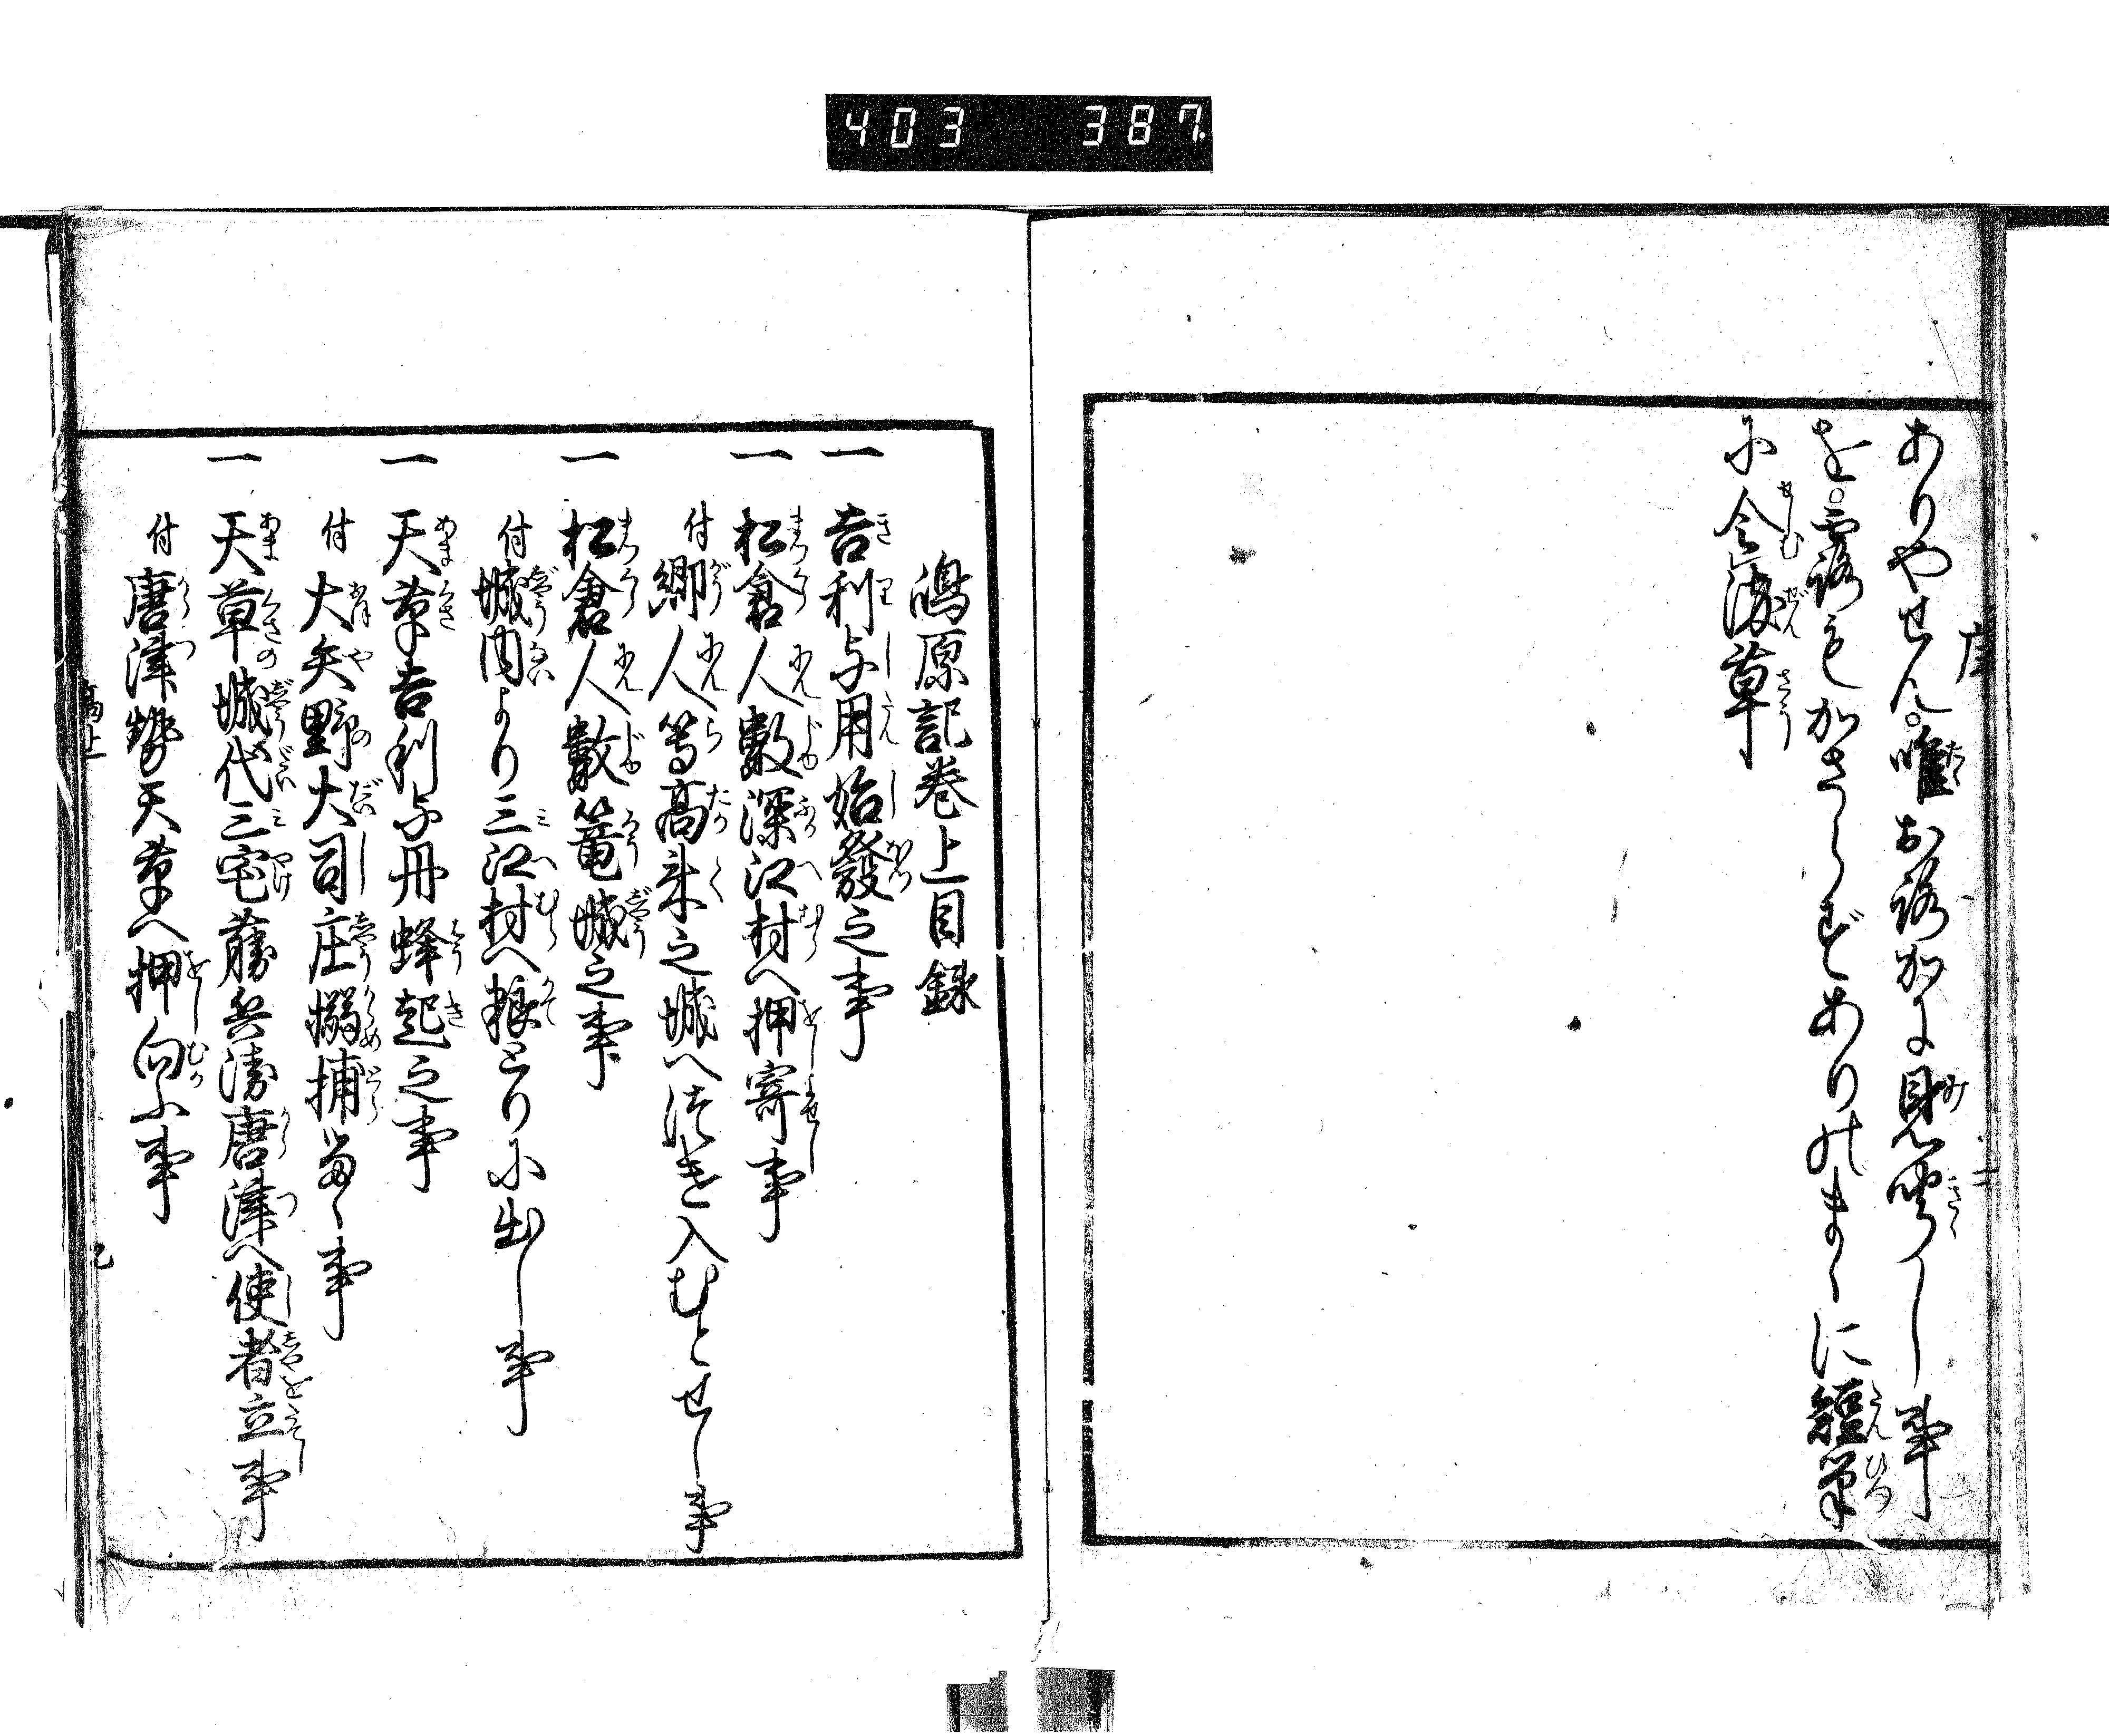 403 387
ありやせん。唯おろかに見聞し事
を。露もかさらずありのまゝに短筆
に令漆草
嶋原記巻上目録
一 吉利支丹始發之事
一 松倉人數深江村へ押寄事
付 郷人等高来之城へつき入むとせし事
一 松倉人數篭城之事
付 城内より三江村へ粮とりに出し事
一 天草吉利支丹蜂起之事
付 大矢野大司庄搦捕るゝ事
一 天草城代三宅藤兵衛唐津へ使者立事
付 唐津勢天草へ押向ふ事